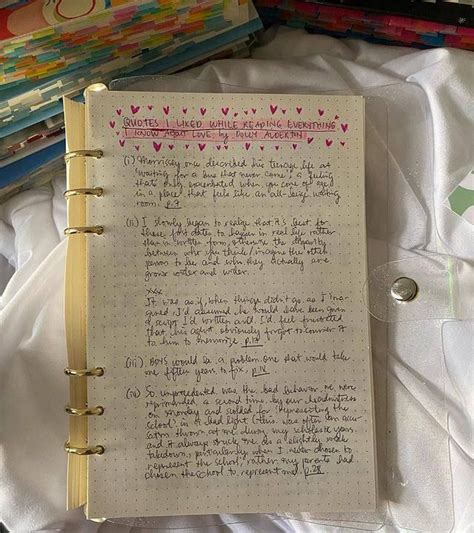 QUOTES I LIKED WHILE READING EVERYTHING
I KNOW ABOUT LOVE by DOLLY ALDERTON
(i) Morrissey once described his teenage life as
"waiting for a bus that never came"; a feeling
that's only exacerbated when you come of age
in a place that feels like an all-beige waiting
room. p.9
(ii) I slowly began to realize that it's best for
those first dates to happen in real life rather
than in written form, otherwise the disparity
between who you think/imagine the other
person to be and who they actually are
grows wider and wider.
xxx
It was as if, when things didn't go as I imag-
ined, I'd assumed he would have been given
a script I'd written and I'd feel frustrated
that his agent obviously forgot to courier it
to him to memorize.
(iii) BOYS would be a problem one that would take
me fifteen years to fix.
(iv) So unprecedented was the bad behavior, we were
reprimanded a second time by our headmistress
on Monday and scolded for 'Representing the
school' in a bad light (this was often an accu-
sation thrown at me during my schoolgirl years
and it always struck me as a slightly weak
takedown, particularly when I never chose to
represent the school, rather my parents had
chosen the school to represent me). p.28